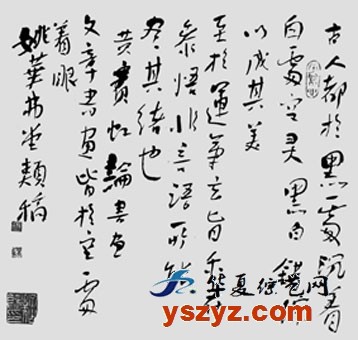 古人都於黑處沉着
白處空灵黑白錯綜
以成其美
至於運筆玄旨
參悟非言語所
尽其緒也
黄賓虹論書画
文章書画皆於空處
着眼
姚華弗堂類稿
华夏网
yszyz.com